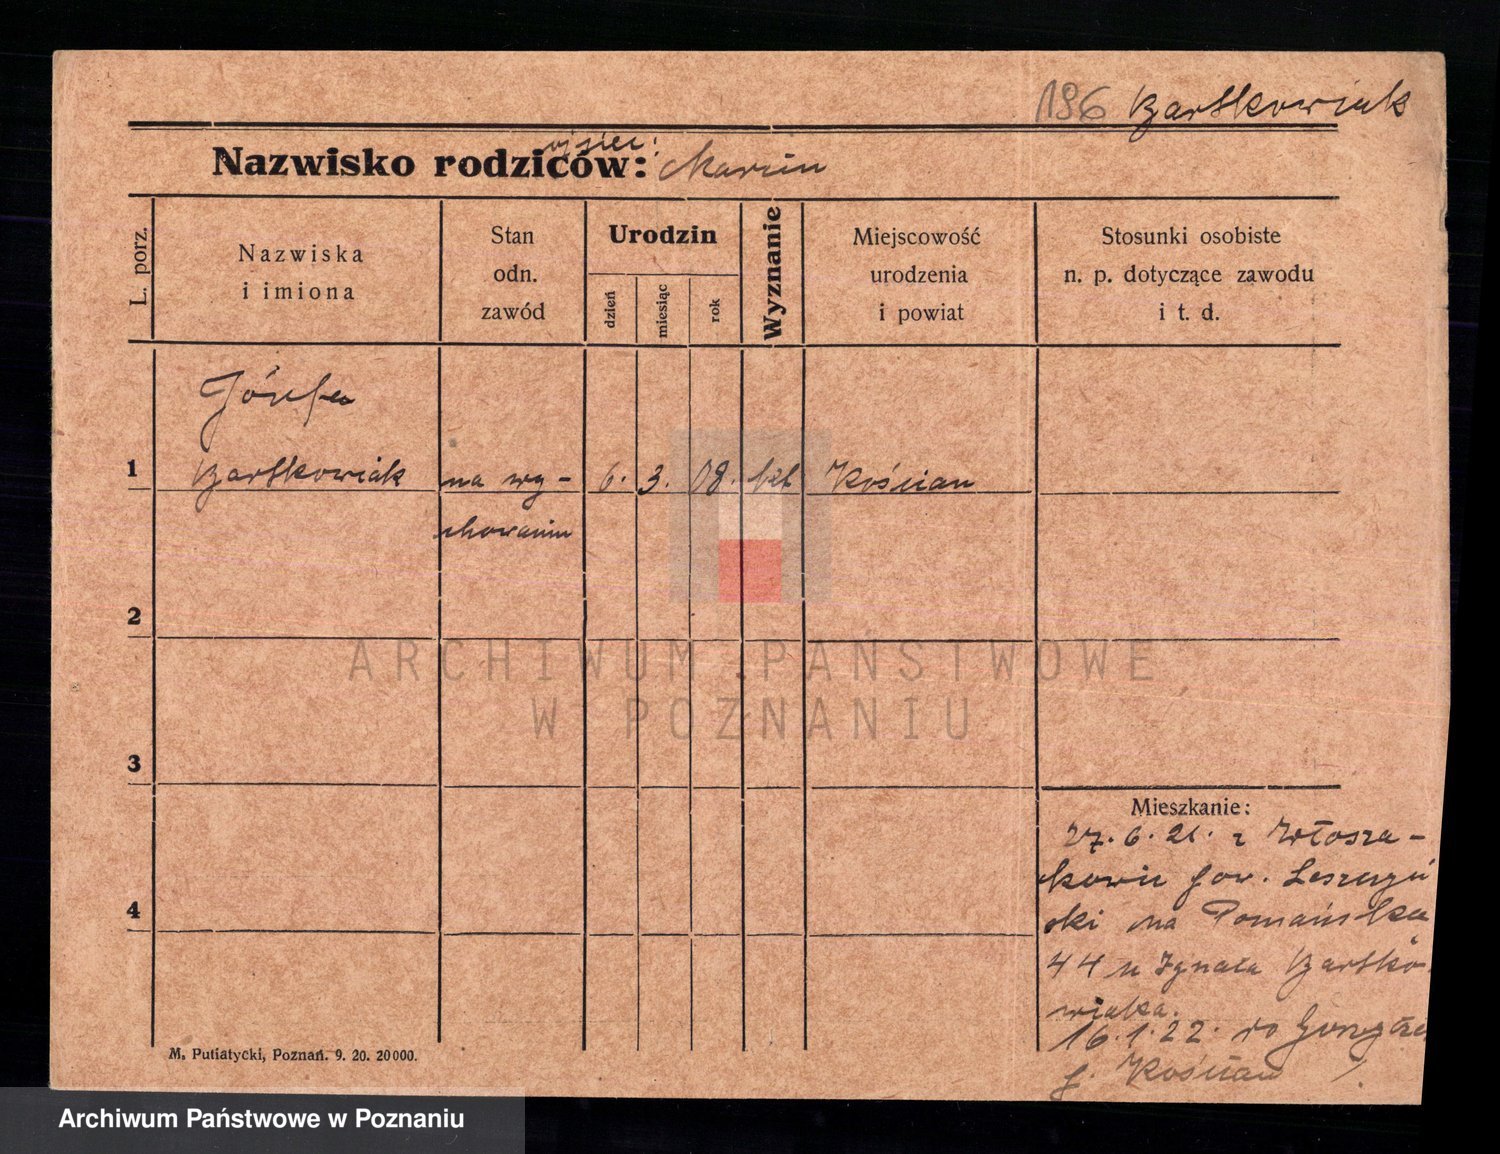 196 Bartkowiak
ojciec:
Nazwisko rodziców: Marcin
L. porz.
Nazwiska
i imiona
Stan
odn.
zawód
Urodzin
dzień
miesiąc
rok
Wyznanie
Miejscowość
urodzenia
i powiat
Stosunki osobiste
n. p. dotyczące zawodu
i t. d.
Józefa
1 Bartkowiak na wy- 6. 3. 08. kat Kościan
chowaniu
2
ARCHIWUM PAŃSTWOWE
W POZNANIU
3
Mieszkanie:
27. 6. 21. z Włosza-
kowic pow. Leszczyń
4
ski na Poznańska
44 u Ignaca Bartko-
wiaka.
16.1.22. do
p. Kościan
M. Putiatycki, Poznań. 9. 20. 20000.
Archiwum Państwowe w Poznaniu